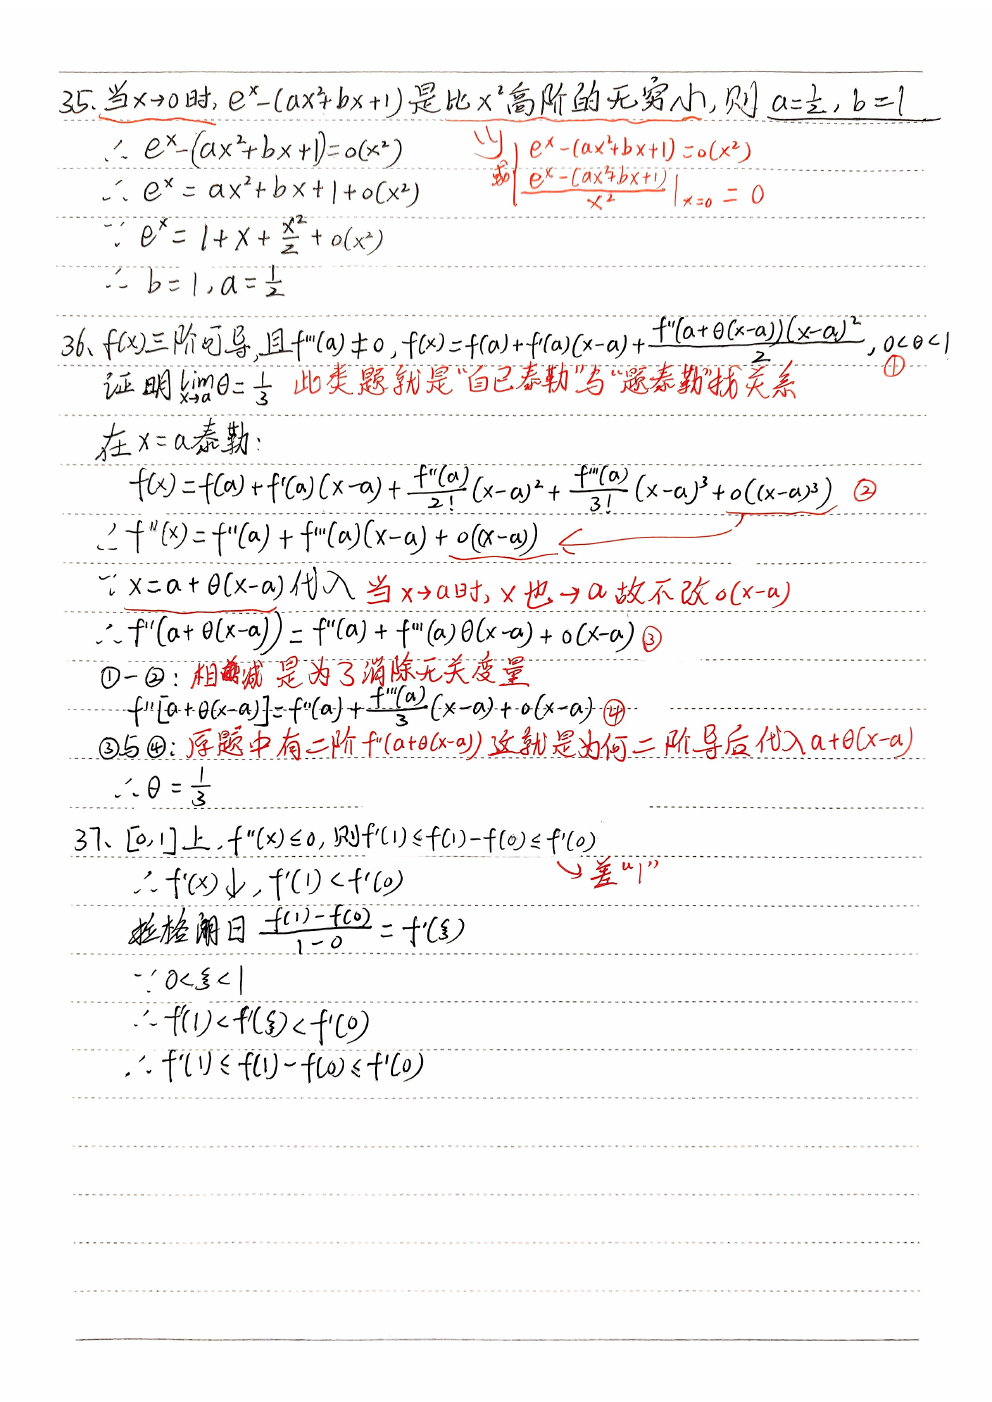 35、当x→0时, eˣ-(ax²+bx+1)是比x²高阶的无穷小, 则 a=1/2, b=1
∴ eˣ-(ax²+bx+1)=o(x²)
eˣ-(ax²+bx+1)=o(x²)
∴ eˣ = ax²+bx+1+o(x²)
或 (eˣ-(ax²+bx+1))/x² |ₓ₌₀ = 0
∵ eˣ = 1+x+x²/2+o(x²)
∴ b=1, a=1/2
36、f(x)三阶可导, 且f'''(a)≠0, f(x)=f(a)+f'(a)(x-a)+f''(a+θ(x-a))(x-a)²/2, 0<θ<1 ①
证明 lim x→a θ=1/3 此类题就是“自己泰勒”与“题泰勒”找关系
在x=a泰勒:
f(x)=f(a)+f'(a)(x-a)+f''(a)/2!(x-a)²+f'''(a)/3!(x-a)³+o((x-a)³) ②
∴ f''(x)=f''(a)+f'''(a)(x-a)+o((x-a))
∵ x=a+θ(x-a)代入 当x→a时, x也→a 故不改o(x-a)
∴ f''(a+θ(x-a))=f''(a)+f'''(a)θ(x-a)+o(x-a) ③
①-②: 相减是为了消除无关变量
f''[a+θ(x-a)]=f''(a)+f'''(a)/3(x-a)+o(x-a) ④
③与④: 原题中有二阶f''(a+θ(x-a))这就是为何二阶导后代入a+θ(x-a)
∴ θ=1/3
37、[0,1]上, f''(x)≤0, 则f'(1)≤f(1)-f(0)≤f'(0)
差“1”
∴ f'(x)↓, f'(1)<f'(0)
拉格朗日 (f(1)-f(0))/(1-0) = f'(ξ)
∵ 0<ξ<1
∴ f'(1)<f'(ξ)<f'(0)
∴ f'(1)≤f(1)-f(0)≤f'(0)